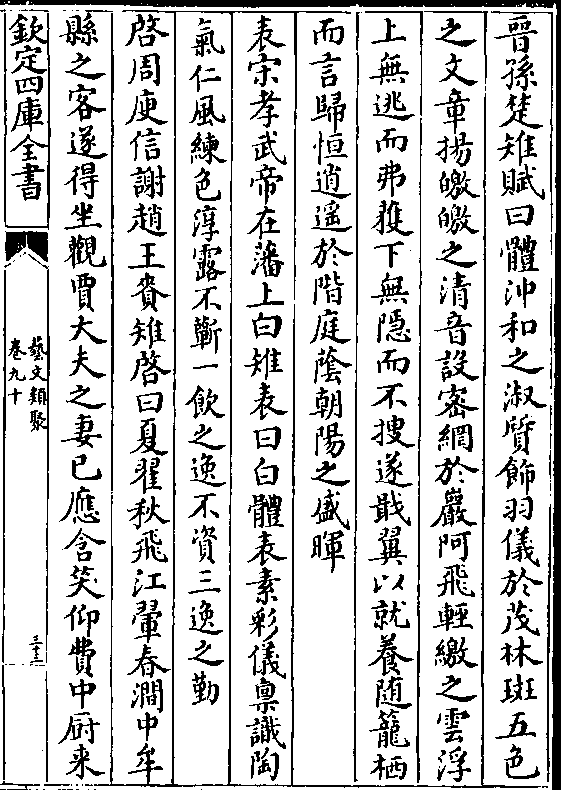 晉孫楚雉賦曰體沖和之淑質飾羽儀於茂林斑五色
之文章揚皦皦之清音設密網於巖阿飛輕繳之雲浮
上無逃而弗獲下無隱而不搜遂戢翼以就養随籠栖
而言歸恒逍遥於階庭䕃朝陽之盛暉
表宋孝武帝在藩上白雉表曰白體表素彩儀稟識陶
氣仁風練色淳露不蘄一飲之逸不資三逸之勤
啓周庾信謝趙王賚雉啓曰夏翟秋飛江翬春澗中牟
縣之客遂得坐觀賈大夫之妻已應含笑仰費中厨来
欽定四庫全書
藝文類聚
卷九十
三十三